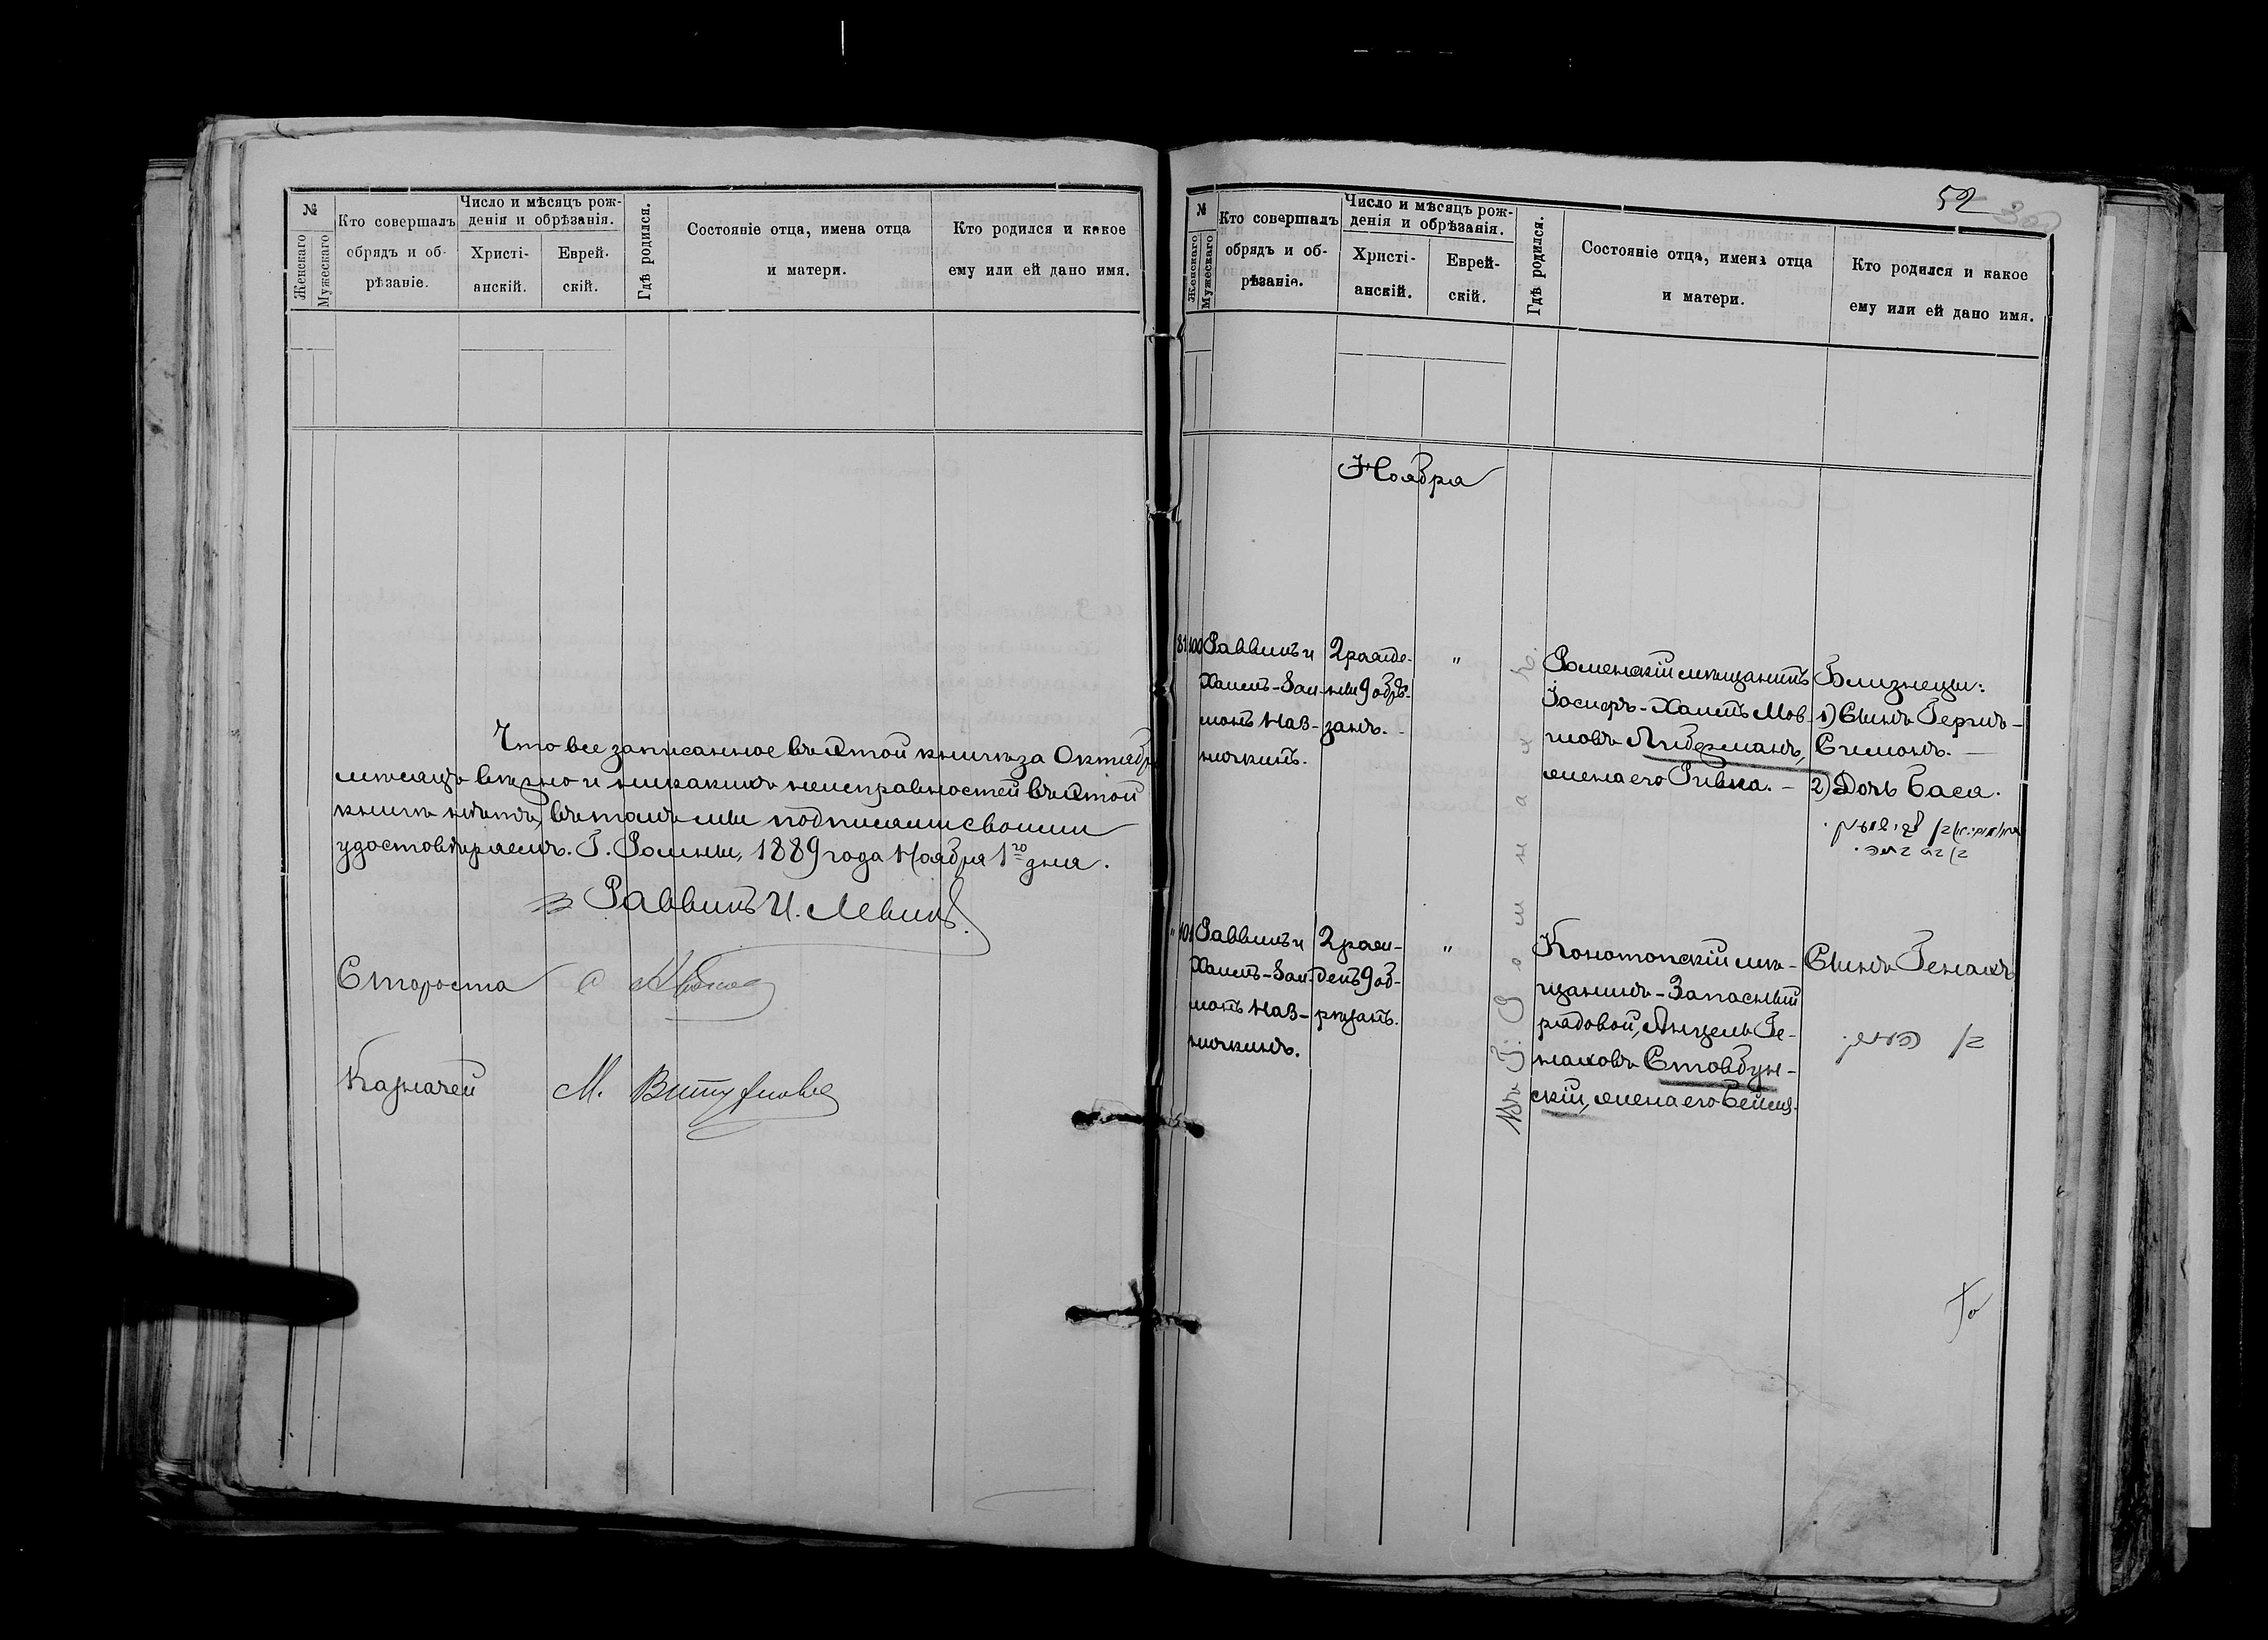 №
Женскаго
Мужескаго
Кто совершалъ
обрядъ и об-
рѣзаніе.
Число и мѣсяцъ рож-
денія и обрѣзанія.
Христі-
анскій.
Еврей-
скій.
Гдѣ родился.
Состояніе отца, имена отца
и матери.
Кто родился и какое
ему или ей дано имя.
Что все записанное въ этой книгѣ за Октябрь
мѣсяцъ вѣрно и никакихъ неисправностей въ этой
книгѣ нѣтъ, въ томъ мы подписями своими
удостовѣряемъ. Г. Ромны, 1889 года Ноября 1го дня.
Раввинъ И. Левинъ.
Староста
Казначей М.
52
№
Женскаго
Мужескаго
Кто совершалъ
обрядъ и об-
рѣзаніе.
Число и мѣсяцъ рож-
денія и обрѣзанія.
Христі-
анскій.
Еврей-
скій.
Гдѣ родился.
Состояніе отца, имена отца
и матери.
Кто родился и какое
ему или ей дано имя.
Ноября
81 100
Раввинъ и
Хаимъ-Зал-
монъ Наз-
ничкинъ.
2 рожде-
ны 9 обрѣ-
занъ.
"
Въ Г. Ромнахъ.
Роменскій мѣщанинъ
Іосифъ-Хаимъ Мов-
шовъ Либерманъ,
жена его Ривка. -
Близнецы:
1) Сынъ Гершъ-
Симонъ. -
2) Дочь Бася.
" 101
Раввинъ и
Хаимъ-Зал-
монъ Наз-
ничкинъ.
2 рож-
денъ 9 об-
рѣзанъ.
"
Конотопскій мѣ-
щанинъ - Запасный
рядовой, Янцель Ге-
наховъ Столбун-
скій, жена его Бейля.
Сынъ Генахъ